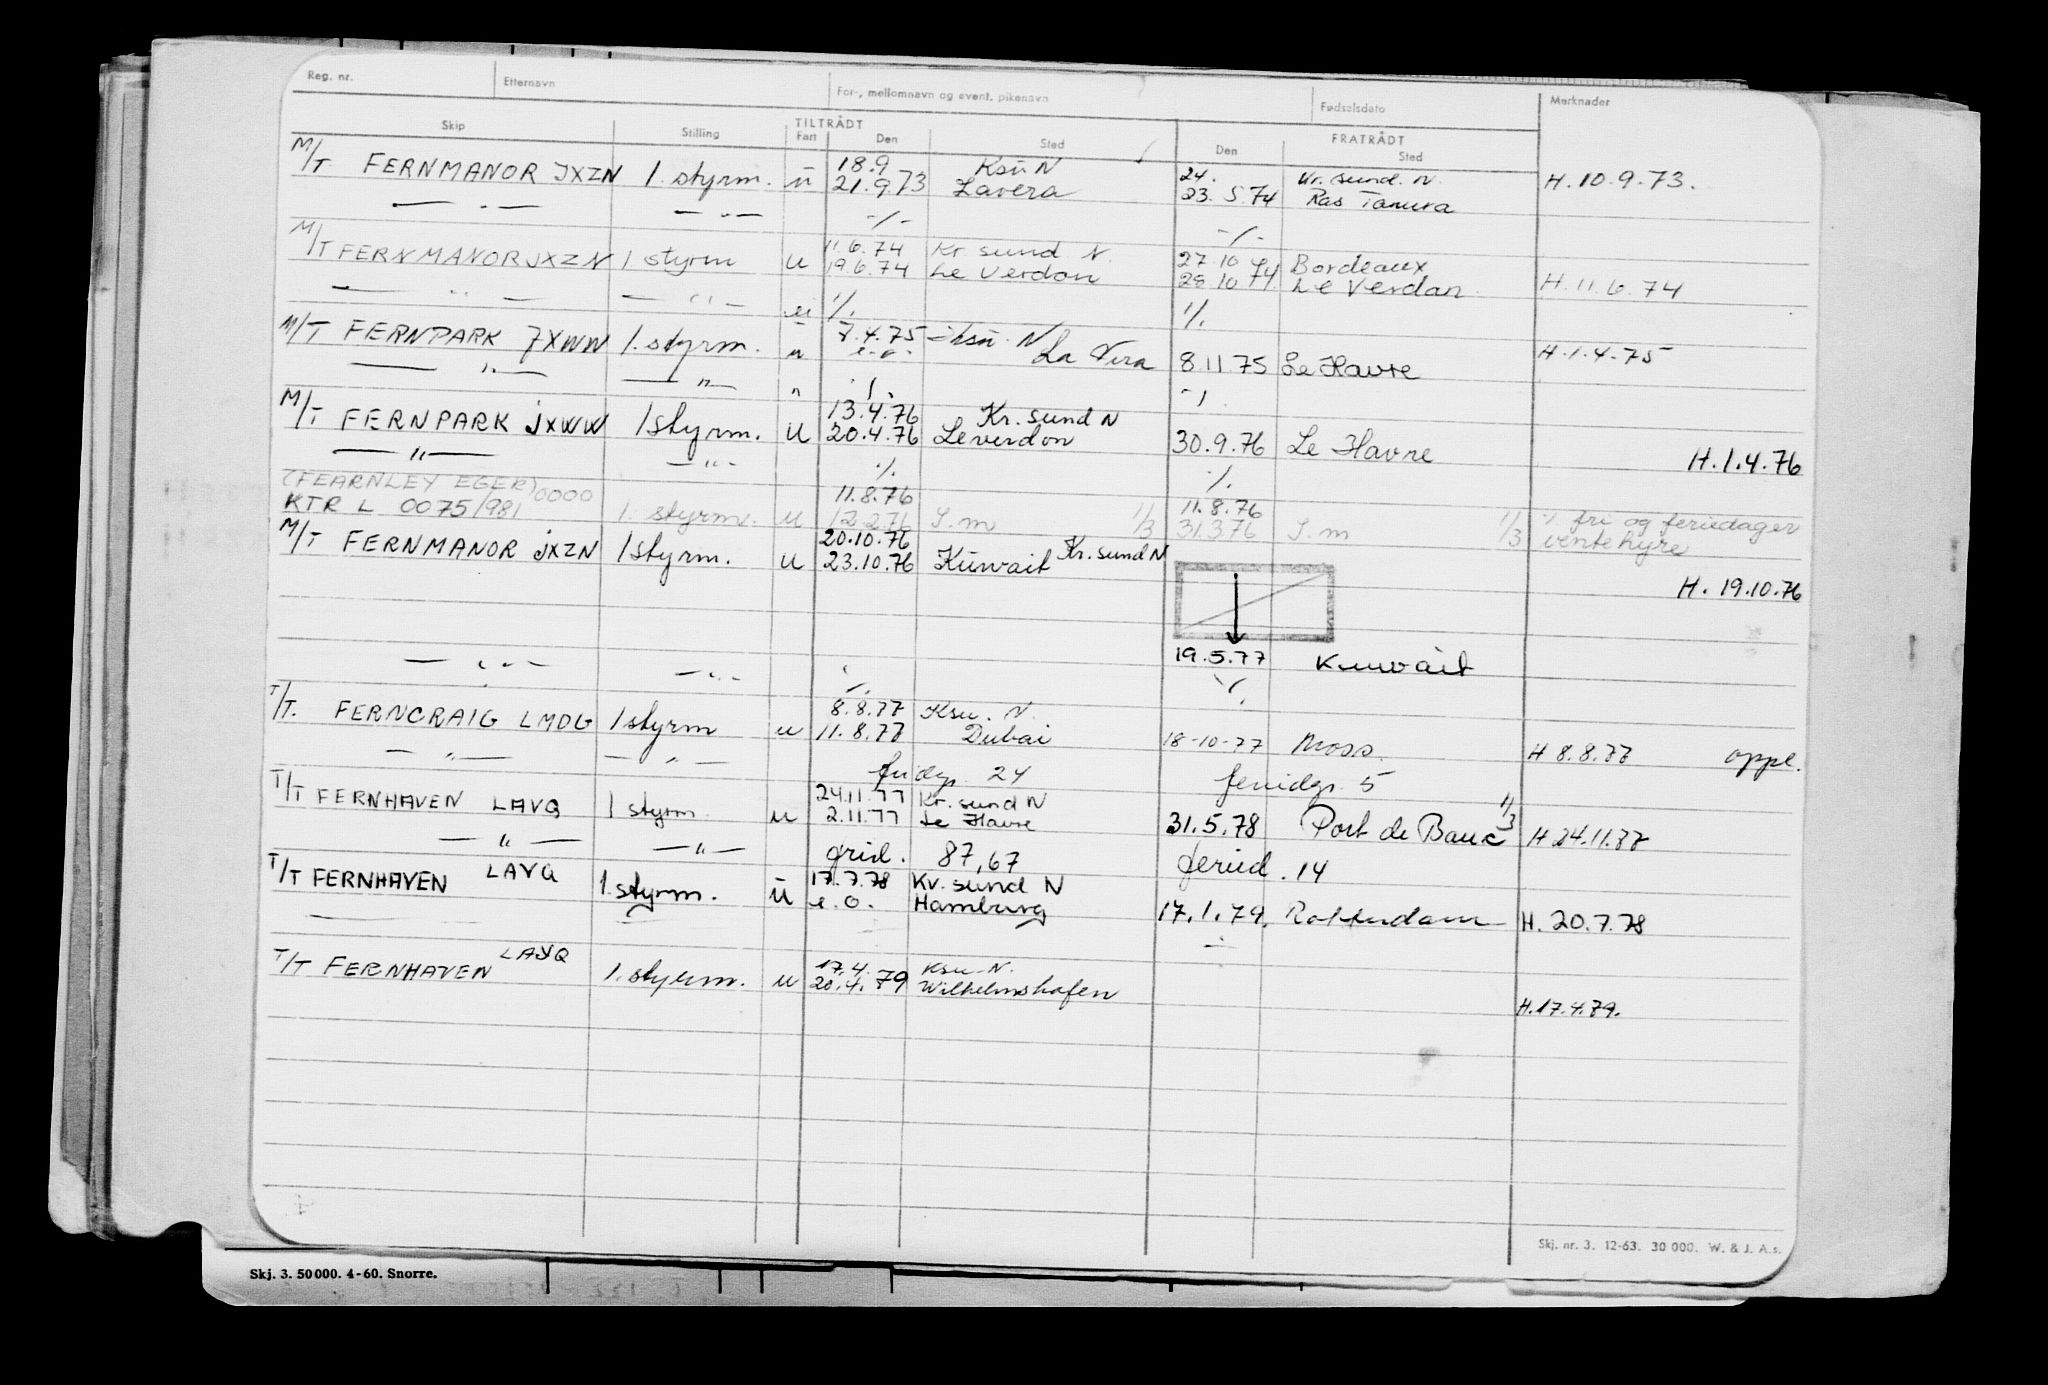 Reg. nr. Etternavn For-, mellomnavn og event. pikenavn Fødselsdato Merknader
TILTRÅDT FRATRÅDT
Skip Stilling Fart Den Sted Den Sted
18.9 Ksu N 24. Kr. sund. N.
M/T FERNMANOR JXZN 1. styrm. u 21.9.73 Lavera 23.5.74 Ras Tanura H. 10.9.73.
— " — — " — -/- -/-
11.6.74 Kr sund N. 27.10.74 Bordeaux
M/T FERNMANOR JXZN 1 styrm u 19.6.74 Le Verdon 28.10.74. Le Verdan H. 11.6.74
— " — — " — -/. -/.
7.4.75 Ksu. N
M/T FERNPARK JXWW 1. styrm. u e.o. La Vera 8.11.75 Le Havre H.1.4.75
— " — — " — " -/- -/.
13.4.76 Kr. sund N
M/T FERNPARK JXWW 1 styrm. u 20.4.76 Le verdon 30.9.76 Le Havre H.1.4.76
— " — — " — -/. -/.
(FEARNLEY EGER) 0000 11.8.76 11.8.76
KTR L 0075/981 1. styrm. u 12.2.76 S.m 1/3 31.3.76 S.m 1/3 -/ fri og feriedager
ventehyre
20.10.76 Kr. sund N
M/T FERNMANOR JXZN 1 styrm. u 23.10.76 Kuwait H. 19.10.76
— " — — " — -/. 19.5.77 Kuwait
-/.
8.8.77 Ksu. N.
T/T. FERNCRAIG LMDG 1 styrm u 11.8.77 Dubai 18-10-77 Moss. H 8.8.77 oppl.
— " — — " — fridgr. 24 feriedgr. 5
24.11.77 Kr. sund N
T/T FERNHAVEN LAVQ 1 styrm. u 2.11.77 Le Havre 31.5.78 Port de Bauc 1/3 H 24.11.77
— " — — " — frid. 87,67 feried. 14
17.7.78 Kr. sund N
T/T FERNHAVEN LAVQ 1. styrm. u e.o. Hamburg 17.1.79. Rotterdam H. 20.7.78
17.4. Ksu N.
T/T FERNHAVEN LAVQ 1. styrm. u 20.4.79 Wilhelmshafen
H.17.4.79.
Skj. nr. 3. 12-63. 30 000. W. & J. A.s.
Skj. 3. 50000. 4-60. Snorre.